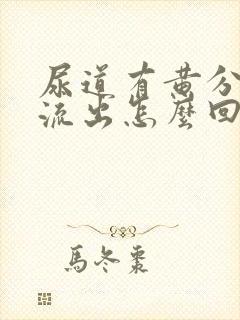 尿道有黄分
流出怎麼回
馬冬棗